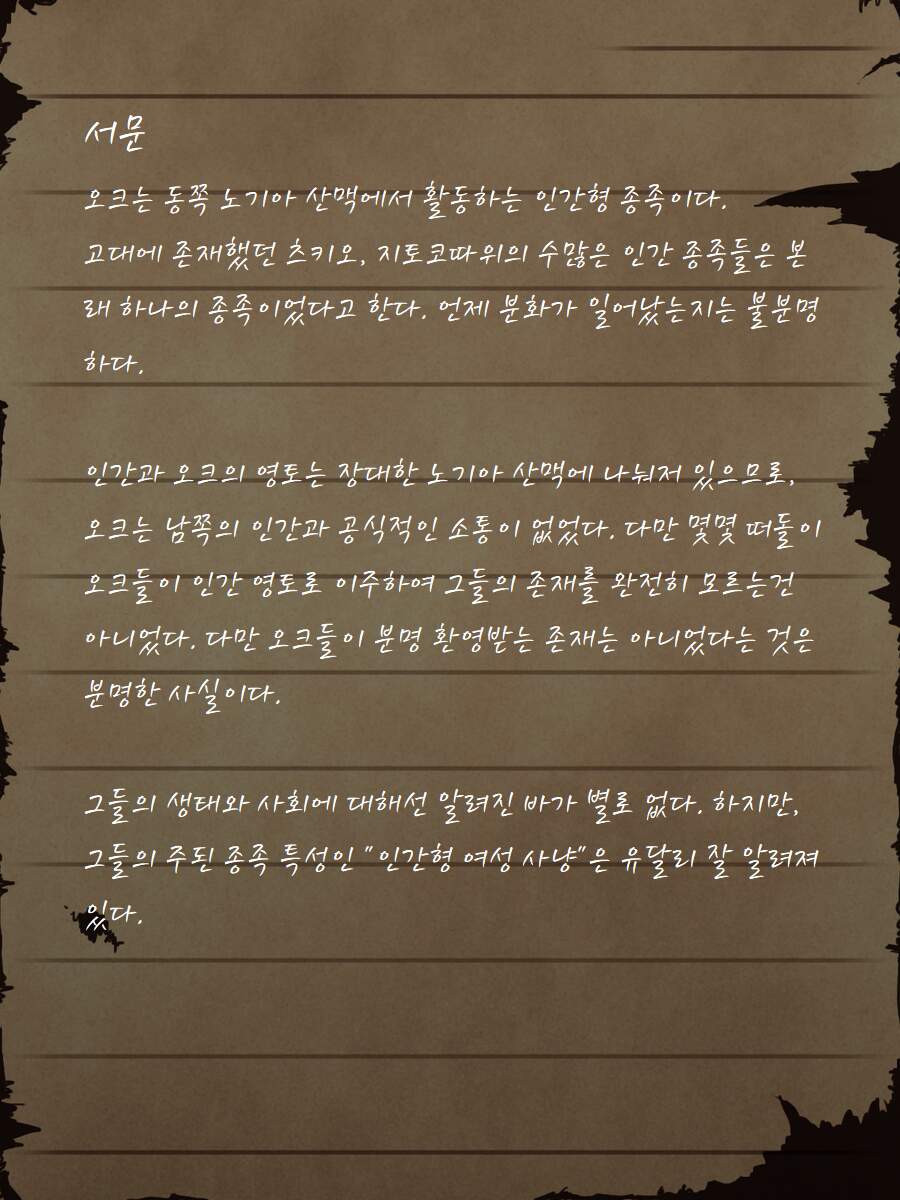 서문
오크는 동쪽 노기아 산맥에서 활동하는 인간형 종족이다.
고대에 존재했던 츠키오, 지토코따위의 수많은 인간 종족들은 본
래 하나의 종족이었다고 한다. 언제 분화가 일어났는지는 불분명
하다.
인간과 오크의 영토는 장대한 노기아 산맥에 나눠저 있으므로,
오크는 남쪽의 인간과 공식적인 소통이 없었다. 다만 몇몇 떠돌이
오크들이 인간 영토로 이주하여 그들의 존재를 완전히 모르는건
아니었다. 다만 오크들이 분명 환영받는 존재는 아니었다는 것은
분명한 사실이다.
그들의 생태와 사회에 대해선 알려진 바가 별로 없다. 하지만,
그들의 주된 종족 특성인 "인간형 여성 사냥"은 유달리 잘 알려져
있다.